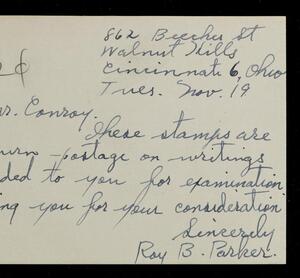 862 Beecher St
Walnut Hills
Cincinnati 6, Ohio
Tues. Nov. 19
r. Conroy.
These stamps are
urn postage on writings
ded to you for examination
ing you for your consideration
Sincerely
Roy B. Parker.